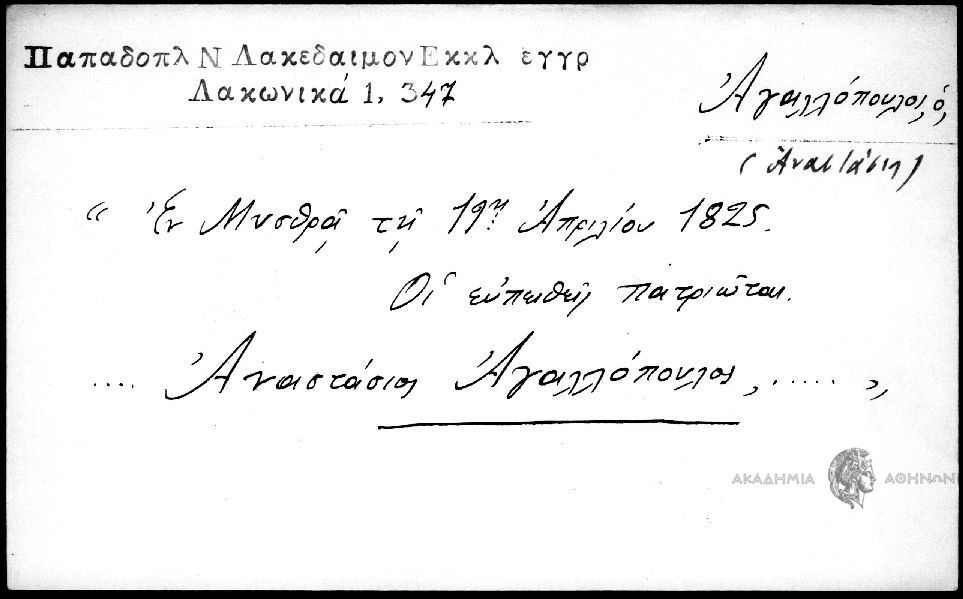 Παπαδοπλ Ν Λακεδαιμον Εκκλ εγγρ
Λακωνικά 1, 347
Ἀγαλλόπουλος, ὁ,
(Ἀναστάσιος)
“ Ἐν Μυσθρᾷ τῇ 19ῃ Ἀπριλίου 1825.
Οἱ εὐπειθεῖς πατριῶται.
.... Ἀναστάσιος Ἀγαλλόπουλος, ..... „
ΑΚΑΔΗΜΙΑ ΑΘΗΝΩΝ